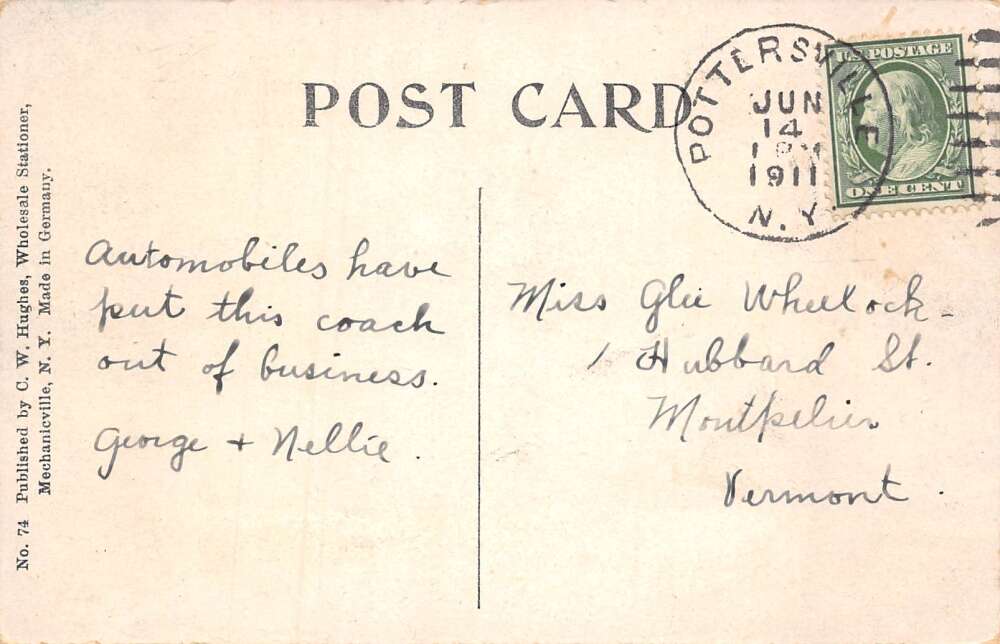 POST CARD
POTTERSVILLE
JUN
14
1 PM
1911
N.Y.
U.S. POSTAGE
ONE CENT
No. 74 Published by C. W. Hughes, Wholesale Stationer,
Mechanicville, N. Y. Made in Germany.
Automobiles have
put this coach
out of business.
George + Nellie.
Miss Glie Wheelock-
1 Hubbard St.
Montpelier
Vermont.